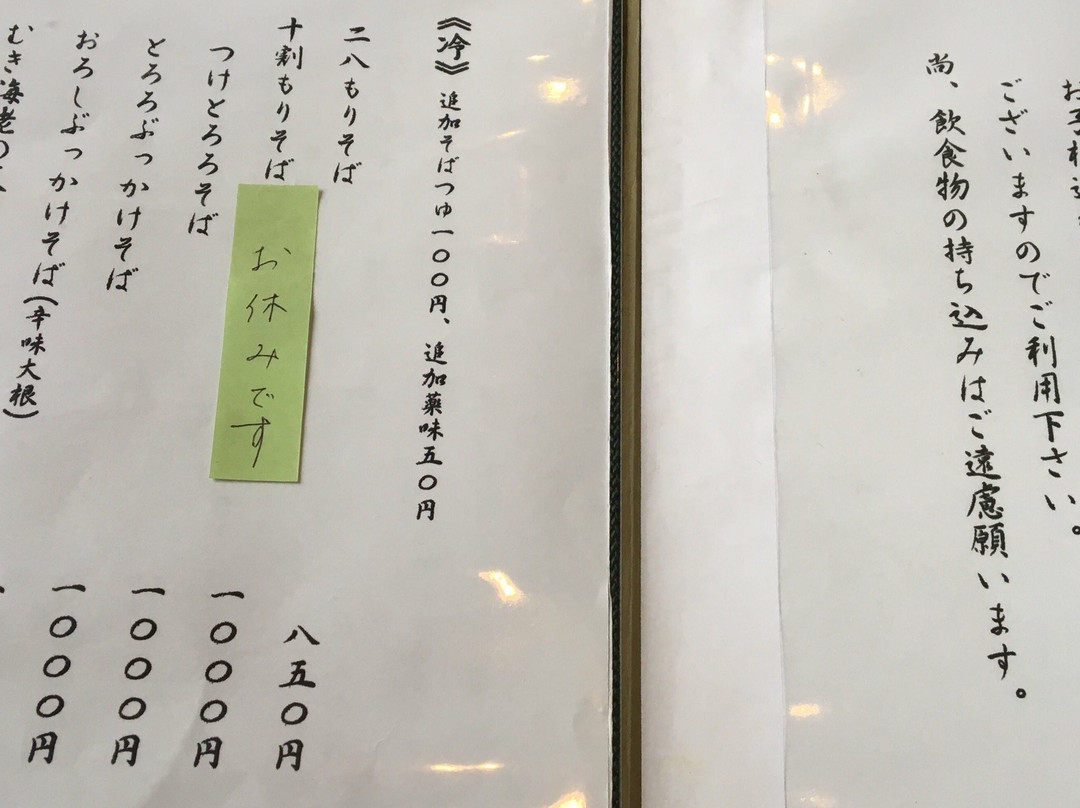 お子様連
ございますのでご利用下さい。
尚、飲食物の持ち込みはご遠慮願います。
《冷》 追加そばつゆ一〇〇円、追加薬味五〇円
二八もりそば 八五〇円
十割もりそば 一〇〇〇円
お休みです
つけとろろそば 一〇〇〇円
とろろぶっかけそば 一〇〇〇円
おろしぶっかけそば(辛味大根)
むき海老の